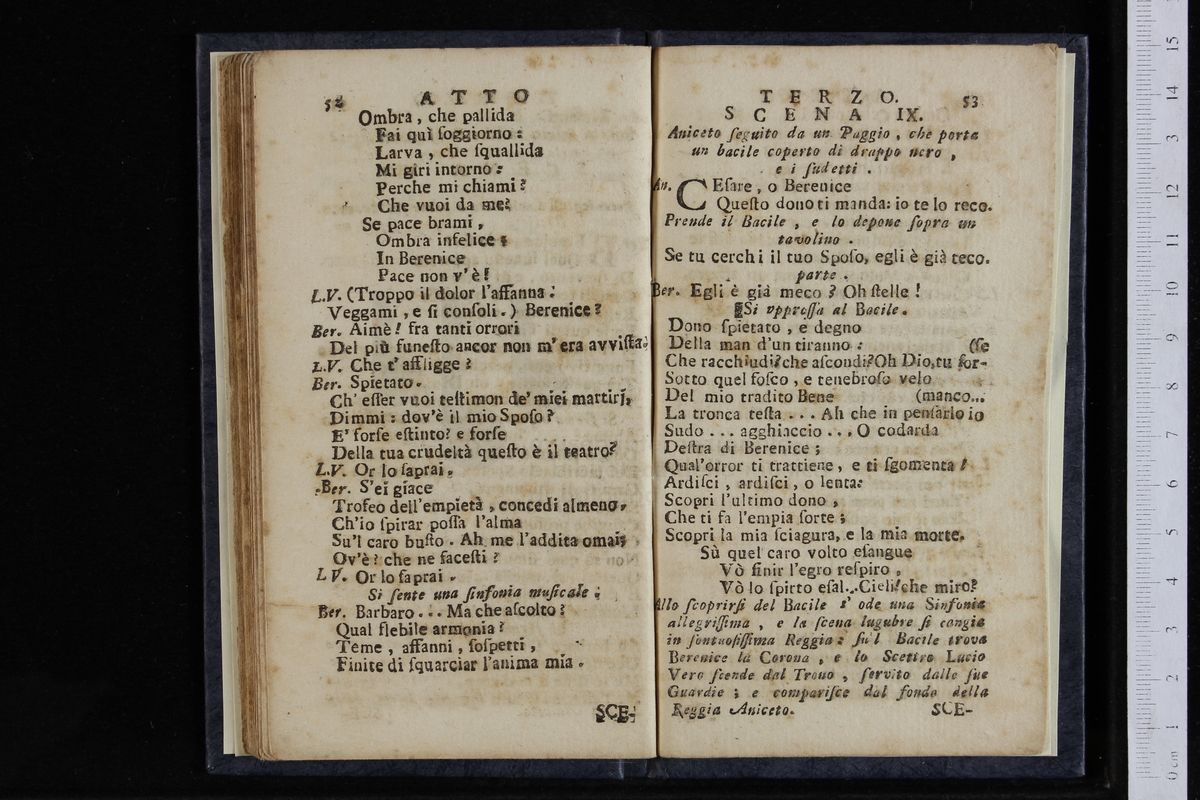 52 ATTO
Ombra, che pallida
Fai quì ſoggiorno:
Larva, che ſquallida
Mi giri intorno:
Perche mi chiami?
Che vuoi da me?
Se pace brami,
Ombra infelice;
In Berenice
Pace non v'è!
L.V. (Troppo il dolor l'affanna:
Veggami, e ſi conſoli.) Berenice?
Ber. Aimè! fra tanti orrori
Del più funeſto ancor non m'era avviſta.
L.V. Che t'affligge?
Ber. Spietato.
Ch'eſſer vuoi teſtimon de' miei martirj,
Dimmi: dov'è il mio Spoſo?
E' forſe eſtinto? e forſe
Della tua crudeltà queſto è il teatro?
L.V. Or lo ſaprai.
Ber. S'ei giace
Trofeo dell'empietà, concedi almeno,
Ch'io ſpirar poſſa l'alma
Su'l caro buſto. Ah me l'addita omai;
Ov'è? che ne faceſti?
L V. Or lo ſaprai.
Si ſente una ſinfonia muſicale;
Ber. Barbaro... Ma che aſcolto?
Qual flebile armonia?
Teme, affanni, ſoſpetti,
Finite di ſquarciar l'anima mia.
SCE-
TERZO. 53
SCENA IX.
Aniceto ſeguito da un Paggio, che porta
un bacile coperto di drappo nero,
e i ſudetti.
An. CEſare, o Berenice
Queſto dono ti manda: io te lo reco.
Prende il Bacile, e lo depone ſopra un
tavolino.
Se tu cerchi il tuo Spoſo, egli è già teco.
parte.
Ber. Egli è già meco? Oh ſtelle!
Si appreſſa al Bacile.
Dono ſpietato, e degno
Della man d'un tiranno: (ſe
Che racchiudi? che aſcondi? Oh Dio, tu for-
Sotto quel foſco, e tenebroſo velo
Del mio tradito Bene (manco...
La tronca teſta... Ah che in penſarlo io
Sudo... agghiaccio... O codarda
Deſtra di Berenice;
Qual'orror ti trattiene, e ti ſgomenta!
Ardiſci, ardiſci, o lenta:
Scopri l'ultimo dono,
Che ti fa l'empia ſorte;
Scopri la mia ſciagura, e la mia morte.
Sù quel caro volto eſangue
Vò finir l'egro reſpiro,
Vò lo ſpirto eſal... Cieli! che miro?
Allo ſcoprirſi del Bacile s' ode una Sinfonia
allegriſſima, e la ſcena lugubre ſi cangia
in ſontuoſiſſima Reggia: ſu'l Bacile trova
Berenice la Corona, e lo Scettro Lucio
Vero ſcende dal Trono, ſervito dalle ſue
Guardie; e compariſce dal fondo della
Reggia Aniceto. SCE-